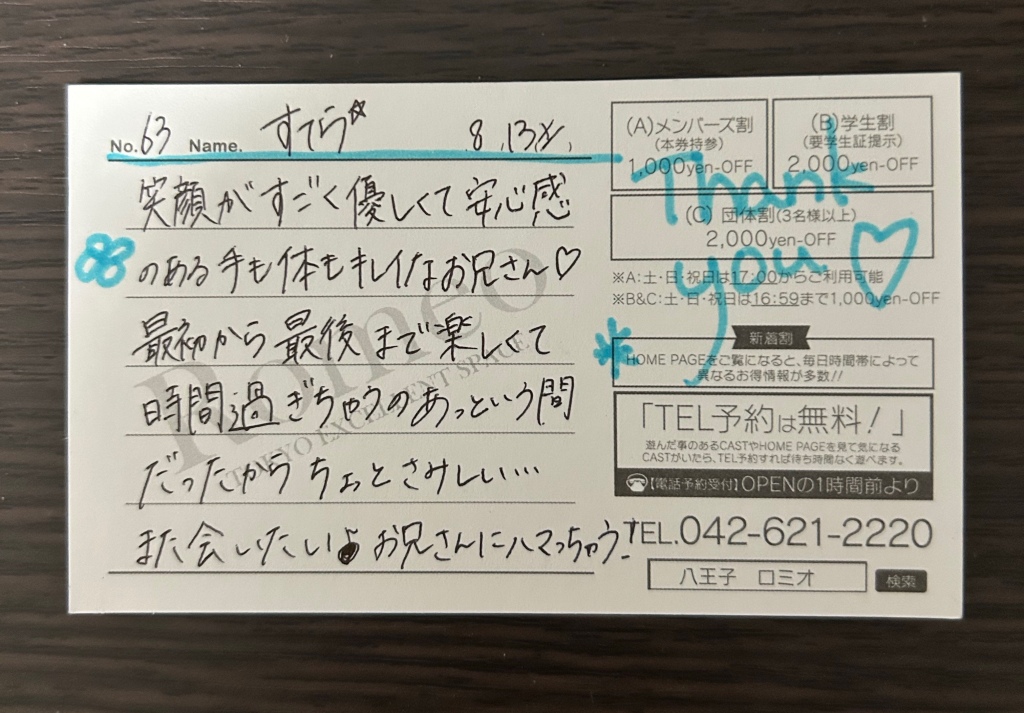 No. 63 Name. すてら☆ 8.13水.
笑顔がすごく優しくて安心感
のある手も体もキレイなお兄さん♡
最初から最後まで楽しくて
時間過ぎちゃうのあっという間
だったからちょっとさみしい…
また会いたい お兄さんにハマっちゃう!
Romeo
TOKYO EXCELLENT SPACE
(A)メンバーズ割
(本券持参)
1,000yen-OFF
(B)学生割
(要学生証提示)
2,000yen-OFF
(C) 団体割(3名様以上)
2,000yen-OFF
Thank
you ♡
※A:土・日・祝日は17:00からご利用可能
※B&C:土・日・祝日は16:59まで1,000yen-OFF
新着割
HOME PAGEをご覧になると、毎日時間帯によって
異なるお得情報が多数!!
「TEL予約は無料!」
遊んだ事のあるCASTやHOME PAGEを見て気になる
CASTがいたら、TEL予約すれば待ち時間なく遊べます。
【電話予約受付】OPENの1時間前より
TEL.042-621-2220
八王子 ロミオ 検索